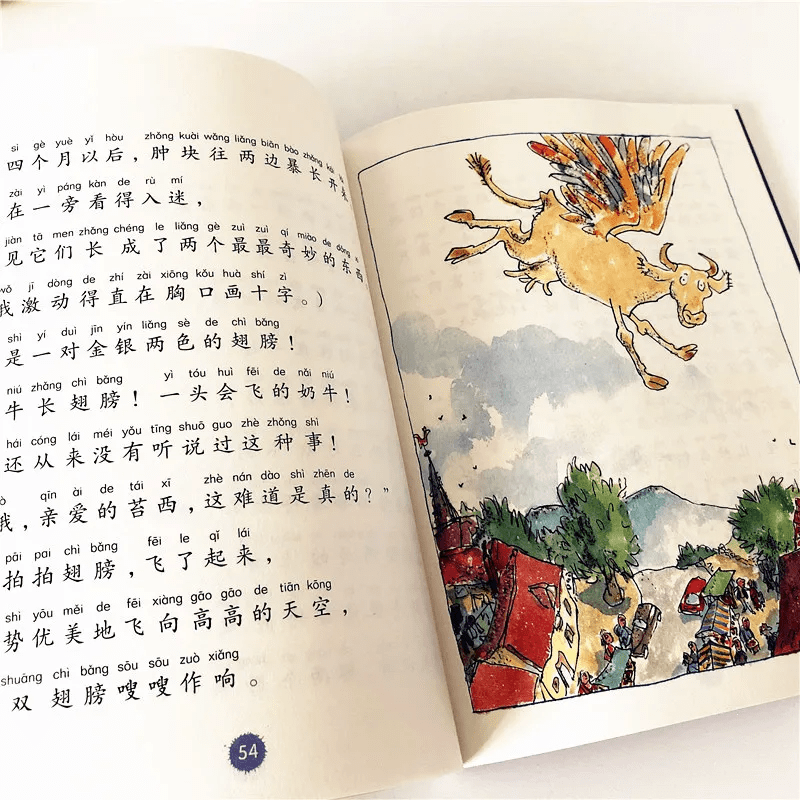 sì gè yuè yǐ hòu zhǒng kuài wǎng liǎng biān bào zhǎng kāi
四个月以后，肿块往两边暴长开来
zài yì páng kàn de rù mí
在一旁看得入迷，
jiàn tā men zhǎng chéng le liǎng gè zuì zuì qí miào de dōng
见它们长成了两个最最奇妙的东西
wǒ jī dòng de zhí zài xiōng kǒu huà shí zì
我激动得直在胸口画十字。)
shì yí duì jīn yín liǎng sè de chì bǎng
是一对金银两色的翅膀！
niú zhǎng chì bǎng yì tóu huì fēi de nǎi niú
牛长翅膀！一头会飞的奶牛！
hái cóng lái méi yǒu tīng shuō guo zhè zhǒng shì
还从来没有听说过这种事！
qīn ài de tái xī zhè nán dào shì zhēn de
我，亲爱的苔西，这难道是真的？”
pāi pai chì bǎng fēi le qǐ lái
拍拍翅膀，飞了起来，
shì yōu měi de fēi xiàng gāo gāo de tiān kōng
势优美地飞向高高的天空，
shuāng chì bǎng sōu sōu zuò xiǎng
双翅膀嗖嗖作响。
54